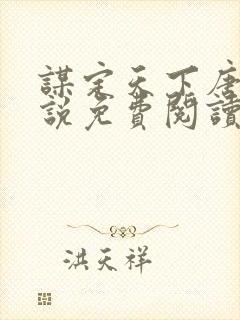 謀定天下唐
說免費閱讀
洪天祥